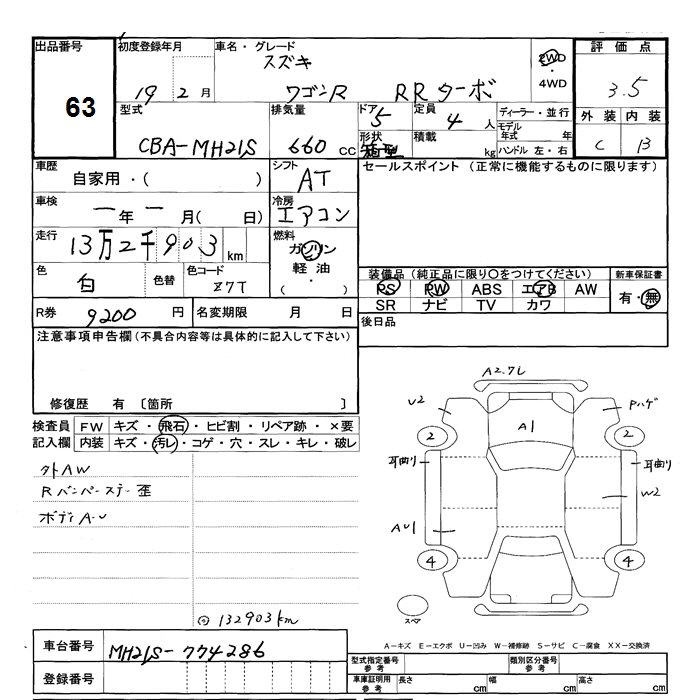 出品番号 初度登録年月 車名・グレード 評価点
63 19 2月 スズキ ワゴンR RRターボ 2WD ・ 4WD 3.5
型式 排気量 ドア 定員 ディーラー・並行 外装 内装
CBA-MH21S 660 cc 5 4 人 モデル年式 年 C B
形状 箱型 積載 kg ハンドル 左・右
車歴 自家用・( ) シフト AT セールスポイント (正常に機能するものに限ります)
車検 一年一月( 日) 冷房 エアコン
走行 13万2千903 km 燃料 ガソリン ・ 軽油 ・ ( )
色 白 色替 色コード Z7T
装備品(純正品に限り○をつけてください) 新車保証書
PS PW ABS エアB AW 有・無
SR ナビ TV カワ
R券 9200 円 名変期限 月 日 後日品
注意事項申告欄(不具合内容等は具体的に記入して下さい)
修復歴 有 〔箇所 〕
検査員 FW キズ・飛石・ヒビ割・リペア跡・×要
記入欄 内装 キズ・汚レ・コゲ・穴・スレ・キレ・破レ
外AW
Rバンパーステー歪
ボディA・U
132903km
A2.7L
U2 Pハゲ
A1
2 2
耳曲り 耳曲り
W2
AU1
4 4
スペア
A－キズ E－エクボ U－凹み W－補修跡 S－サビ C－腐食 XX－交換済
車台番号 MH21S-774286
登録番号
型式指定番号 参考 類別区分番号 参考
車庫証明用 参考 長さ cm 幅 cm 高さ cm